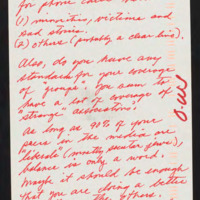 for phone calls
(1) minorities, victims and
sad stories.
(2) others (probably a clear bias).
Also, do you have any
standards for your coverage
of "groups". You seem to
have a lot of coverage of
"strange" associations!
As long as 90% of your
peers in the media are
"liberals" (mostly quarter
balance is only a word.
Maybe it should be enough
that you are doing a better
the others.